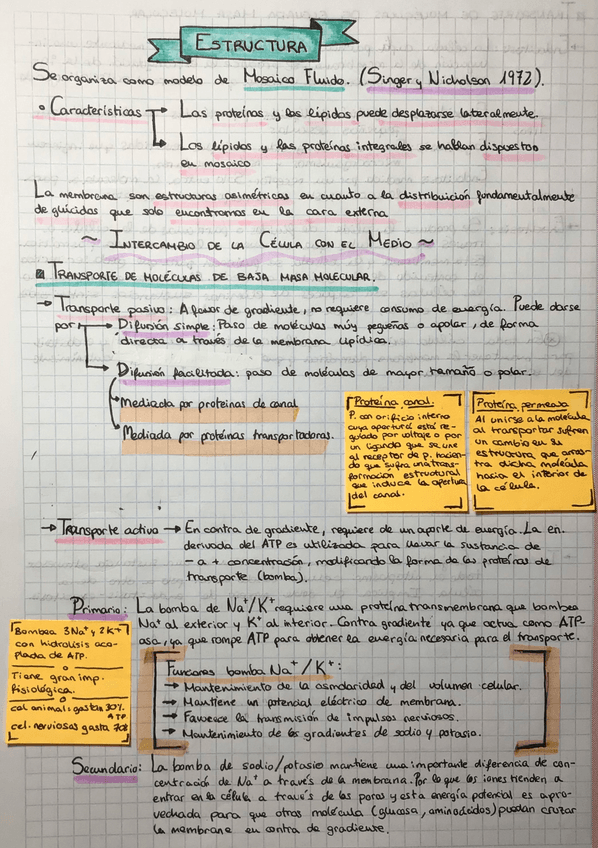 ESTRUCTURA
Se organiza como modelo de Mosaico Fluido. (Singer y Nicholson 1972).
• Características → Las proteínas y los lípidos puede desplazarse lateralmente.
→ Los lípidos y las proteínas integrales se hallan dispuestos
en mosaico
La membrana son estructuras asimétricas en cuanto a la distribuición fundamentalmente
de glúcidos que solo encontramos en la cara externa
~ INTERCAMBIO DE LA CÉLULA CON EL MEDIO ~
TRANSPORTE DE MOLÉCULAS DE BAJA MASA MOLECULAR.
→ Transporte pasivo: A favor de gradiente, no requiere consumo de energía. Puede darse
por → Difusión simple: Paso de moléculas muy pequeñas o apolar, de forma
directa a través de la membrana lipídica.
→ Difusión facilitada: paso de moléculas de mayor tamaño o polar.
→ Mediada por proteinas de canal
→ Mediada por proteínas transportadoras.
Proteína canal:
P. con orificio interno
cuya apertura está re-
gulada por voltaje o por
un ligando que se une
al receptor de p. hacien-
do que sufra una trans-
formación estructural
que induce la apertura
del canal.
Proteína permeasa
Al unirse a la molécula
al transportar sufren
un cambio en su
estructura que arras-
tra dicha molécula
hacia el interior de
la célula.
→ Transporte activo → En contra de gradiente, requiere de un aporte de energía. La en.
derivada del ATP es utilizada para llevar la sustancia de
- a + concentración, modificando la forma de las proteínas de
transporte (bomba).
Primario: La bomba de Na⁺/K⁺ requiere una proteína transmembrana que bombea
Na⁺ al exterior y K⁺ al interior. Contra gradiente ya que actua como ATP-
asa, ya que rompe ATP para obtener la energía necesaria para el transporte.
Bombea 3Na⁺ y 2K⁺
con hidrólisis aco-
plada de ATP.
Tiene gran imp.
fisiológica.
cel. animal: gastan 30%
ATP
cel. nerviosas gasta 70%
Funciones bomba Na⁺/K⁺:
→ Mantenimiento de la osmolaridad y del volumen celular.
→ Mantiene un potencial eléctrico de membrana.
→ Favorece la transmisión de impulsos nerviosos.
→ Mantenimiento de los gradientes de sodio y potasio.
Secundario: La bomba de sodio/potasio mantiene una importante diferencia de con-
centración de Na⁺ a través de la membrana. Por lo que los iones tienden a
entrar en la célula a través de los poros y esta energía potencial es apro-
vechada para que otras molécula (glucosa, aminoácidos) puedan cruzar
la membrana en contra de gradiente.